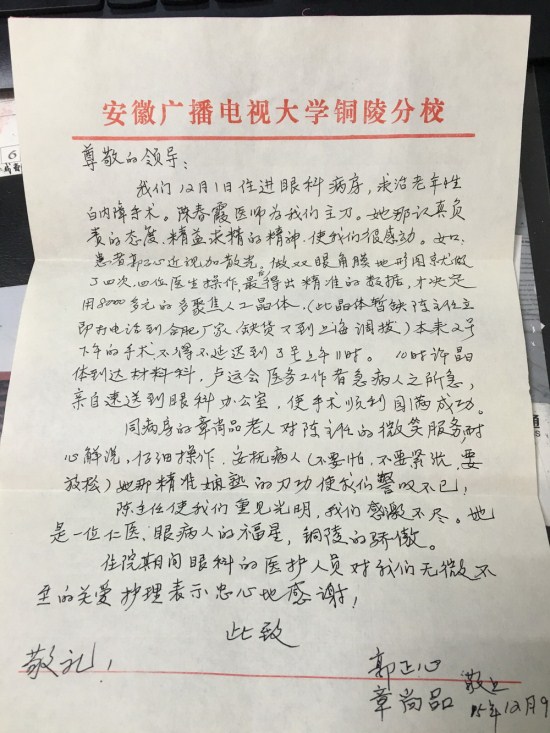 安徽广播电视大学铜陵分校
尊敬的领导：
我们12月1日住进眼科病房，求治老年性
白内障手术。陈春霞医师为我们主刀。她那认真负
责的态度、精益求精的精神，使我们很感动。如：
患者郭正心近视加散光，做双眼角膜地形图就做
了四次，四位医生操作，最后得出精准的数据，才决定
用8000多元的多聚焦人工晶体。（此晶体暂缺陈主任立
即打电话到合肥厂家，缺货又到上海调拨）本来2号
下午的手术不得不延迟到3号上午11时。10时许晶
体到达材料科，卢运会医务工作者急病人之所急，
亲自速送到眼科办公室，使手术顺利圆满成功。
同病房的章尚品老人对陈主任的微笑服务，耐
心解说，仔细操作、安抚病人（不要怕，不要紧张，要
放松）她那精准娴熟的刀功使我们警叹不已！
陈主任使我们重见光明，我们感激不尽。她
是一位仁医、眼病人的福星，铜陵的骄傲。
住院期间眼科的医护人员对我们无微不
至的关爱护理表示忠心地感谢！
此致
敬礼！
郭正心
章尚品 敬上
15年12月9
6